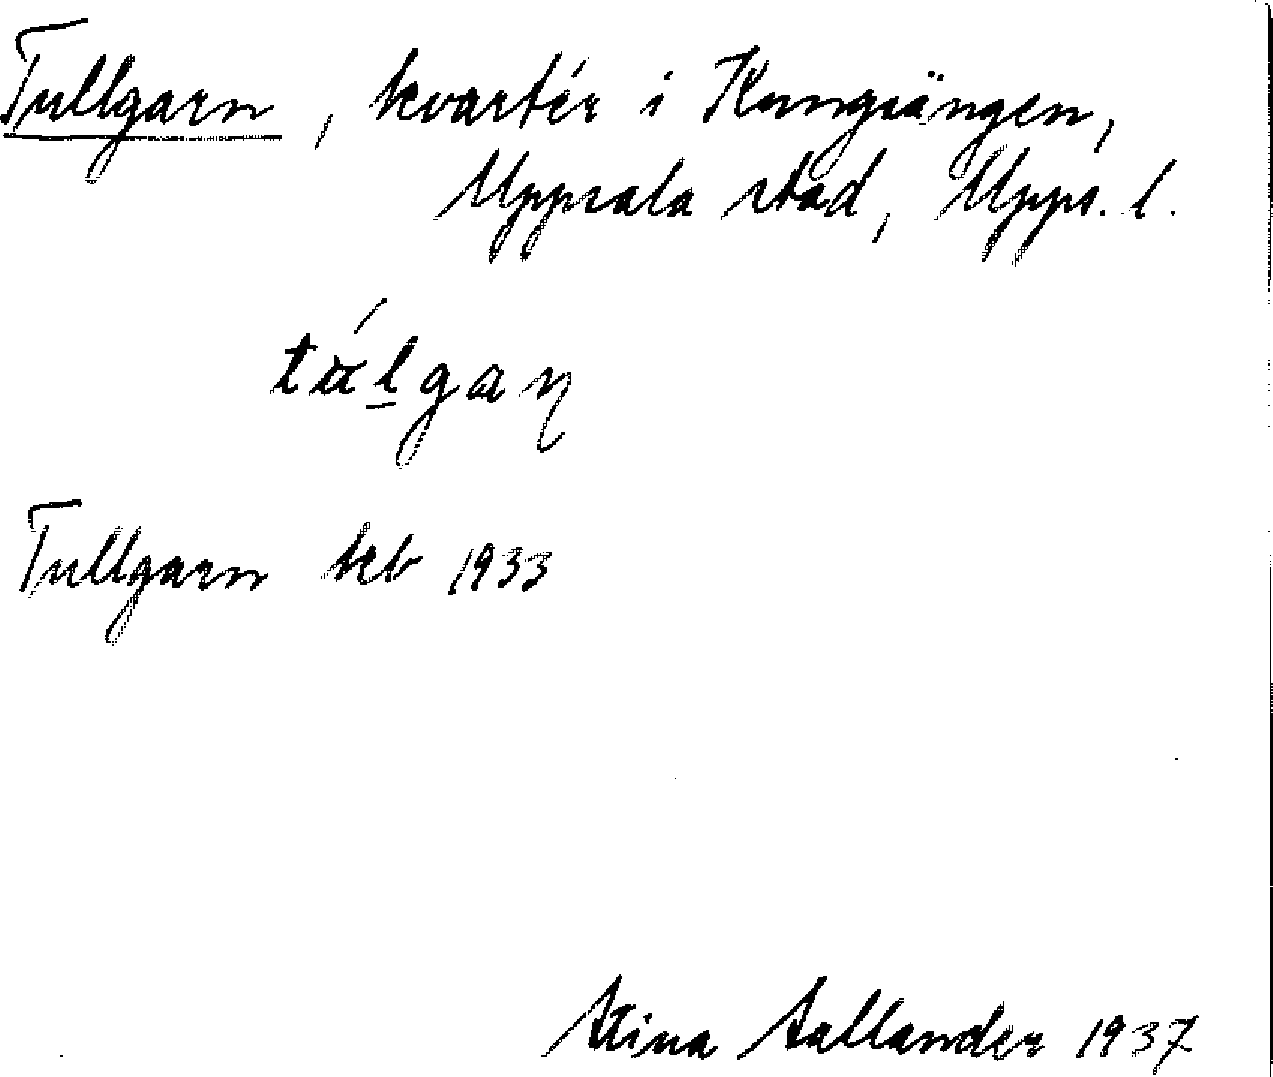 Tullgarn, kvartér i Kungsängen,
Uppsala stad, Upps. l.
Tullgarn tkb 1933
Stina Sallander 1937